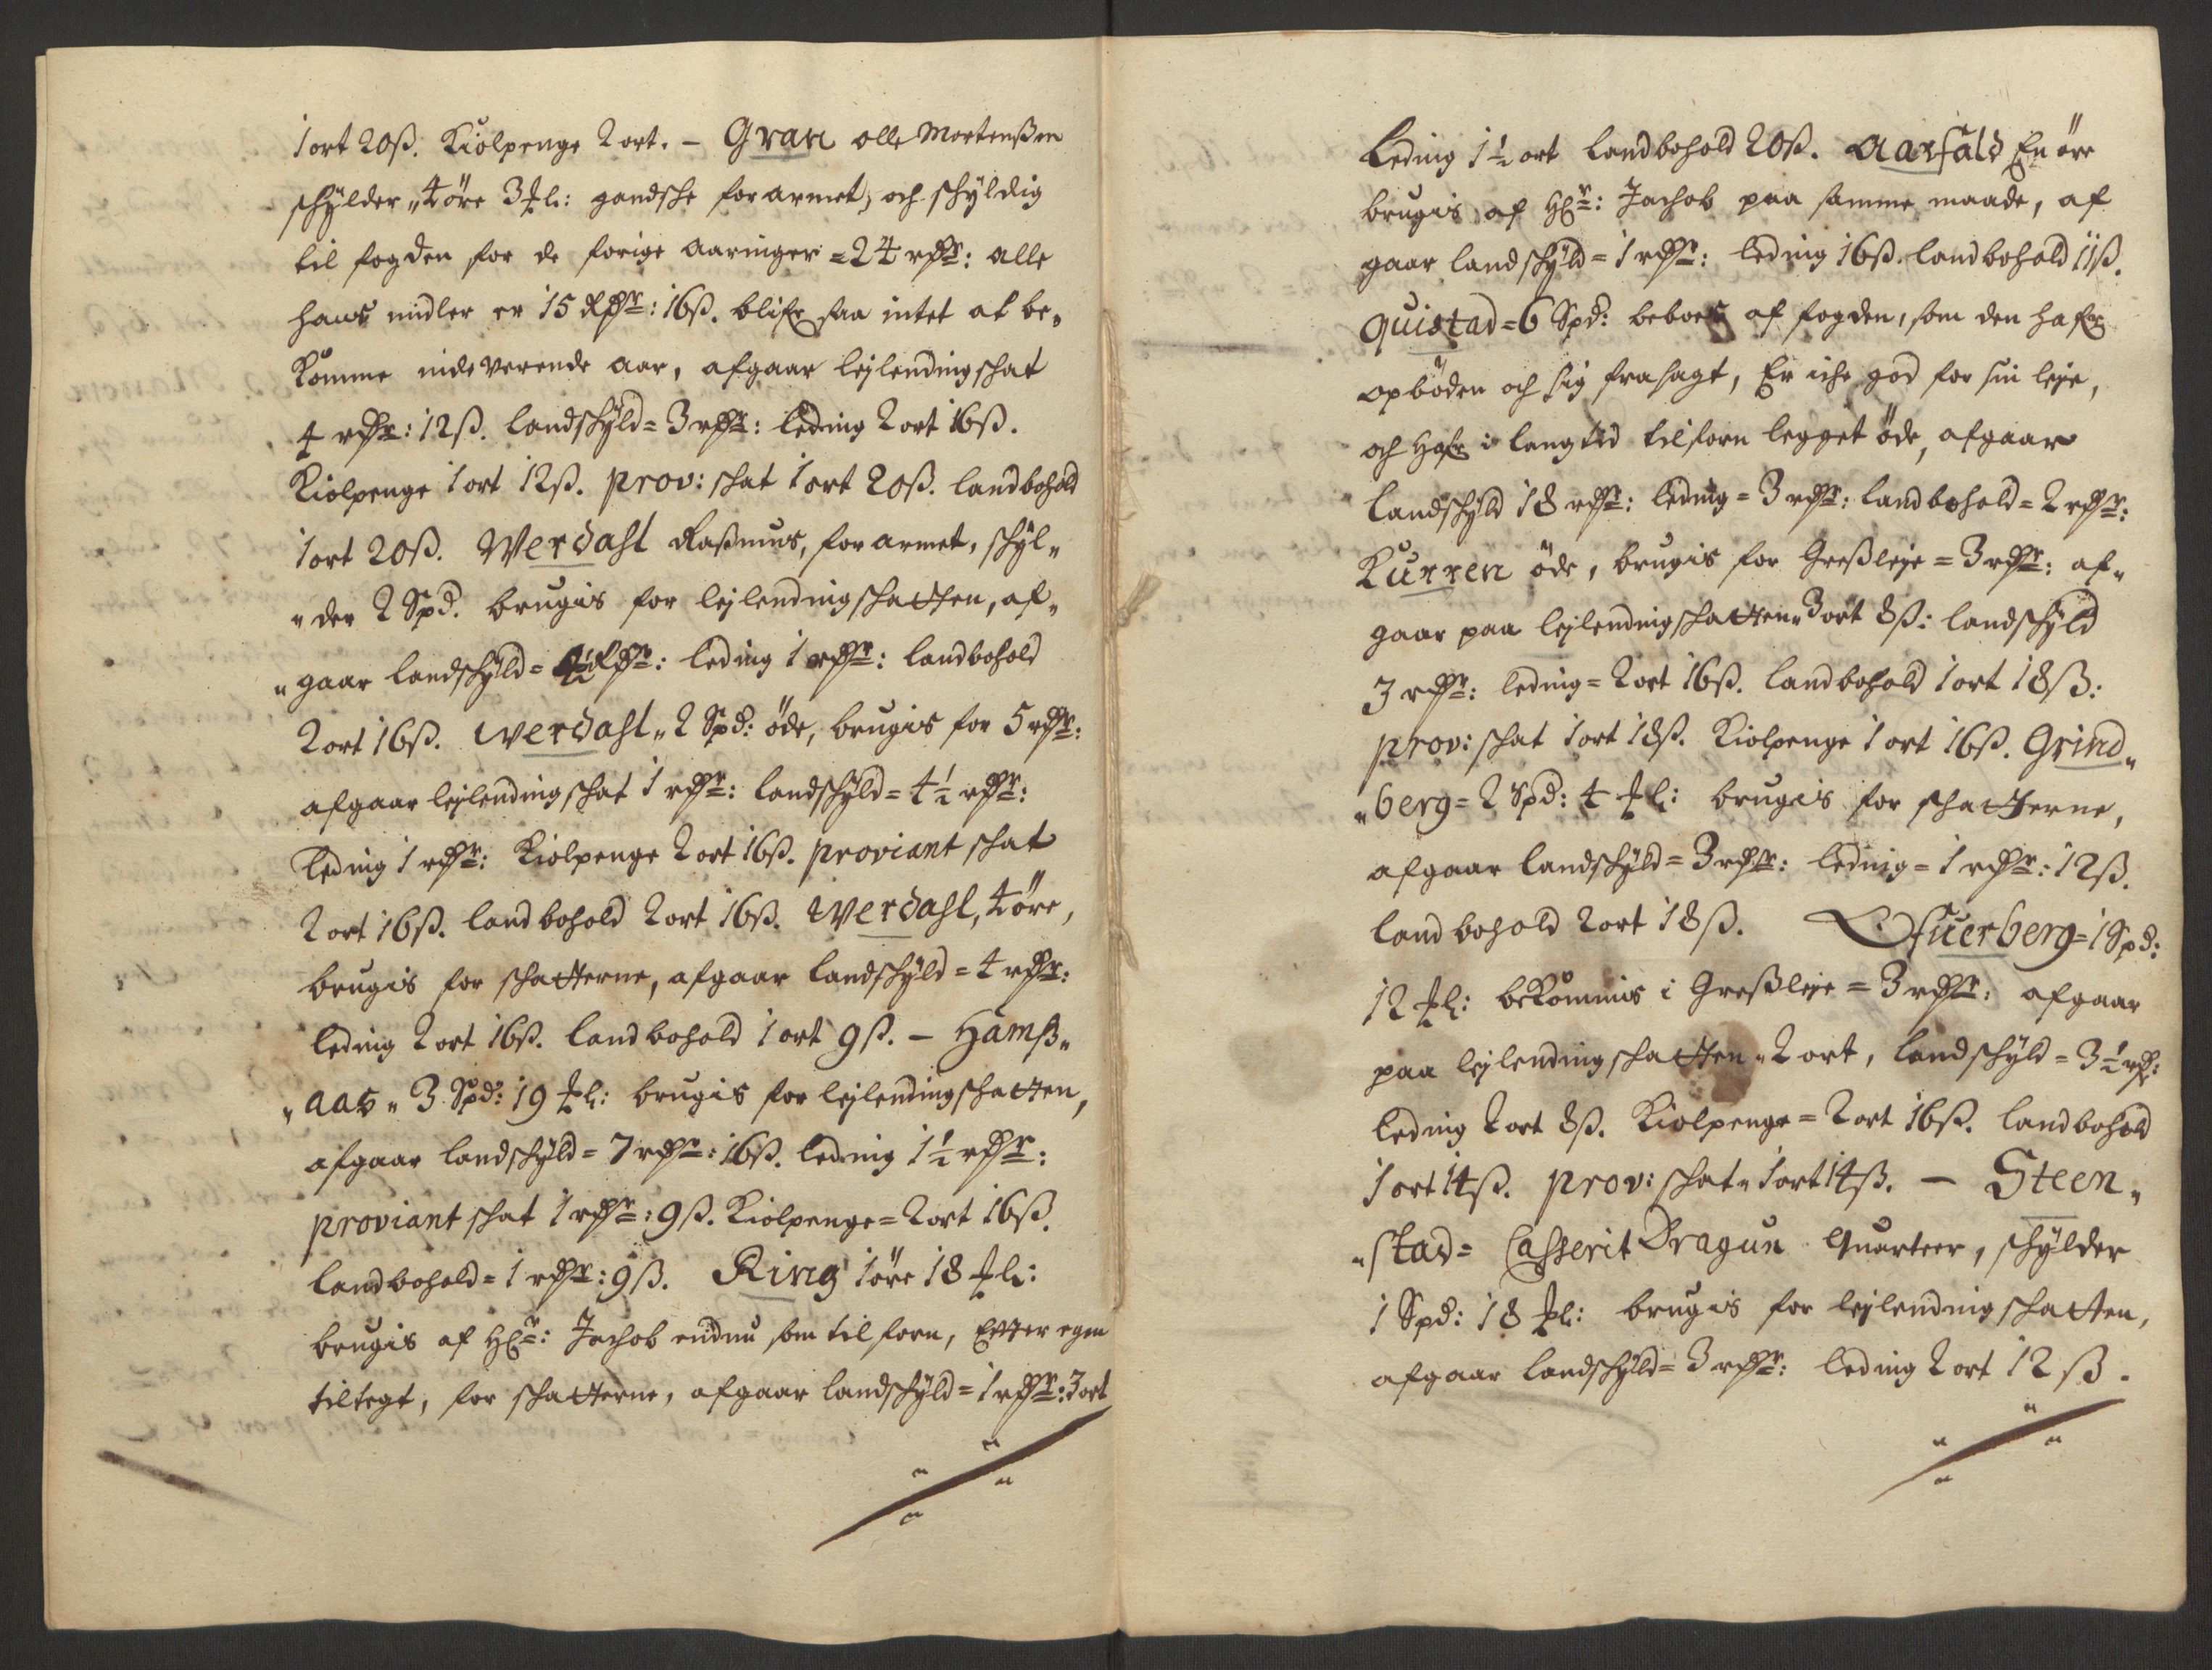 1 ort 20ß. Kiölpenge 2 ort. – Gran olle Mortenßen
schylder „ 4 öre 3 ℔: gandsche forarmet, och schyldig
til fogden for de forige aaringer = 24 rdr: alle
hans midler er 15 Rdr: 16ß. blifr saa intet at be„
komme nidiverende aar, afgaar leylending schat
4 rdr: 12ß. landschyld = 3 rdr: leding 2 ort 16ß.
Kiolpenge 1 ort 12ß. prov: schat 1 ort 20ß. landbohold
1 ort 20ß. Werdahl Raßmus, forarmet, schyl„
„der 2 Spd. brugis for leylending schatten, af„
„gaar landschyld = 4½ Rdr: leding 1 rdr: landbohold
2 ort 16ß. Werdahl „ 2 Spd: öde, brugis for 5 rdr:
afgaar leylending schat 1 rdr: landschyld = 4½ rdr:
leding 1 rdr: Kiolpenge 2 ort 16ß. proviant schat
2 ort 16ß. landbohold 2 ort 16ß. Werdahl, 4 öre,
brugis for schatterne, afgaar landschyld = 4 rdr:
leding 2 ort 16ß. landbohold 1 ort 9ß. – Hamß„
„aas „ 3 Spd: 19 ℔: brugis for leylending schatten,
afgaar landschyld = 7 rdr: 16ß. leding 1½ rdr:
proviant schat 1 rdr: 9ß. Kiolpenge = 2 ort 16ß.
landbohold = 1 rdr: 9ß. Ring 1 öre 18 ℔:
brugis af Hr: Jachob endnu som tilforn, Efter egen
tiltegt, for schatterne, afgaar landschyld = 1 rdr: 3 ort
Leding 1½ ort landbohold 20ß. Aarfald En öre
brugis af Hr: Jachob paa samme maade, af
gaar landschyld = 1 rdr: leding 16ß. landbohold 11ß.
Quistad = 6 Spd: beboes af fogden, som den hafr
opböden och sig frasagt, Er iche god for sin leye,
och hafr i lang tid tilforn legget öde, afgaar
landschyld 18 rdr: leding = 3 rdr: landbohold = 2 rdr:
Kurren öde, brugis for Greßleye = 3 rdr: af„
gaar paa leylending schatten „ 3 ort 8ß: landschyld
3 rdr: leding = 2 ort 16ß. landbohold 1 ort 18ß:
prov: schat 1 ort 18ß. Kiolpenge 1 ort 16ß. Grind„
„berg = 2 Spd: 4 ℔: brugis for schatterne,
afgaar landschyld = 3 rdr: leding = 1 rdr: 12ß.
landbohold 2 ort 18ß. Ofuerberg = 1 Spd:
12 ℔: bekommis i Greßleye = 3 rdr: afgaar
paa leylending schatten „ 2 ort, landschyld = 3½ rdr:
leding 2 ort 8ß. Kiolpenge = 2 ort 16ß. landbohold
1 ort 14ß. prov: schat „ 1 ort 14ß. – Steen„
„stad = Casserit Dragun Quarteer, schylder
1 Spd: 18 ℔: brugis for leylending schatten,
afgaar landschyld = 3 rdr: leding 2 ort 12ß.